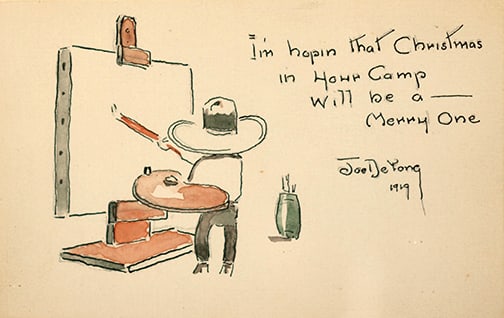 I'm hopin that Christmas
in Your Camp
Will be a —
Merry One
Joe De Yong
1919